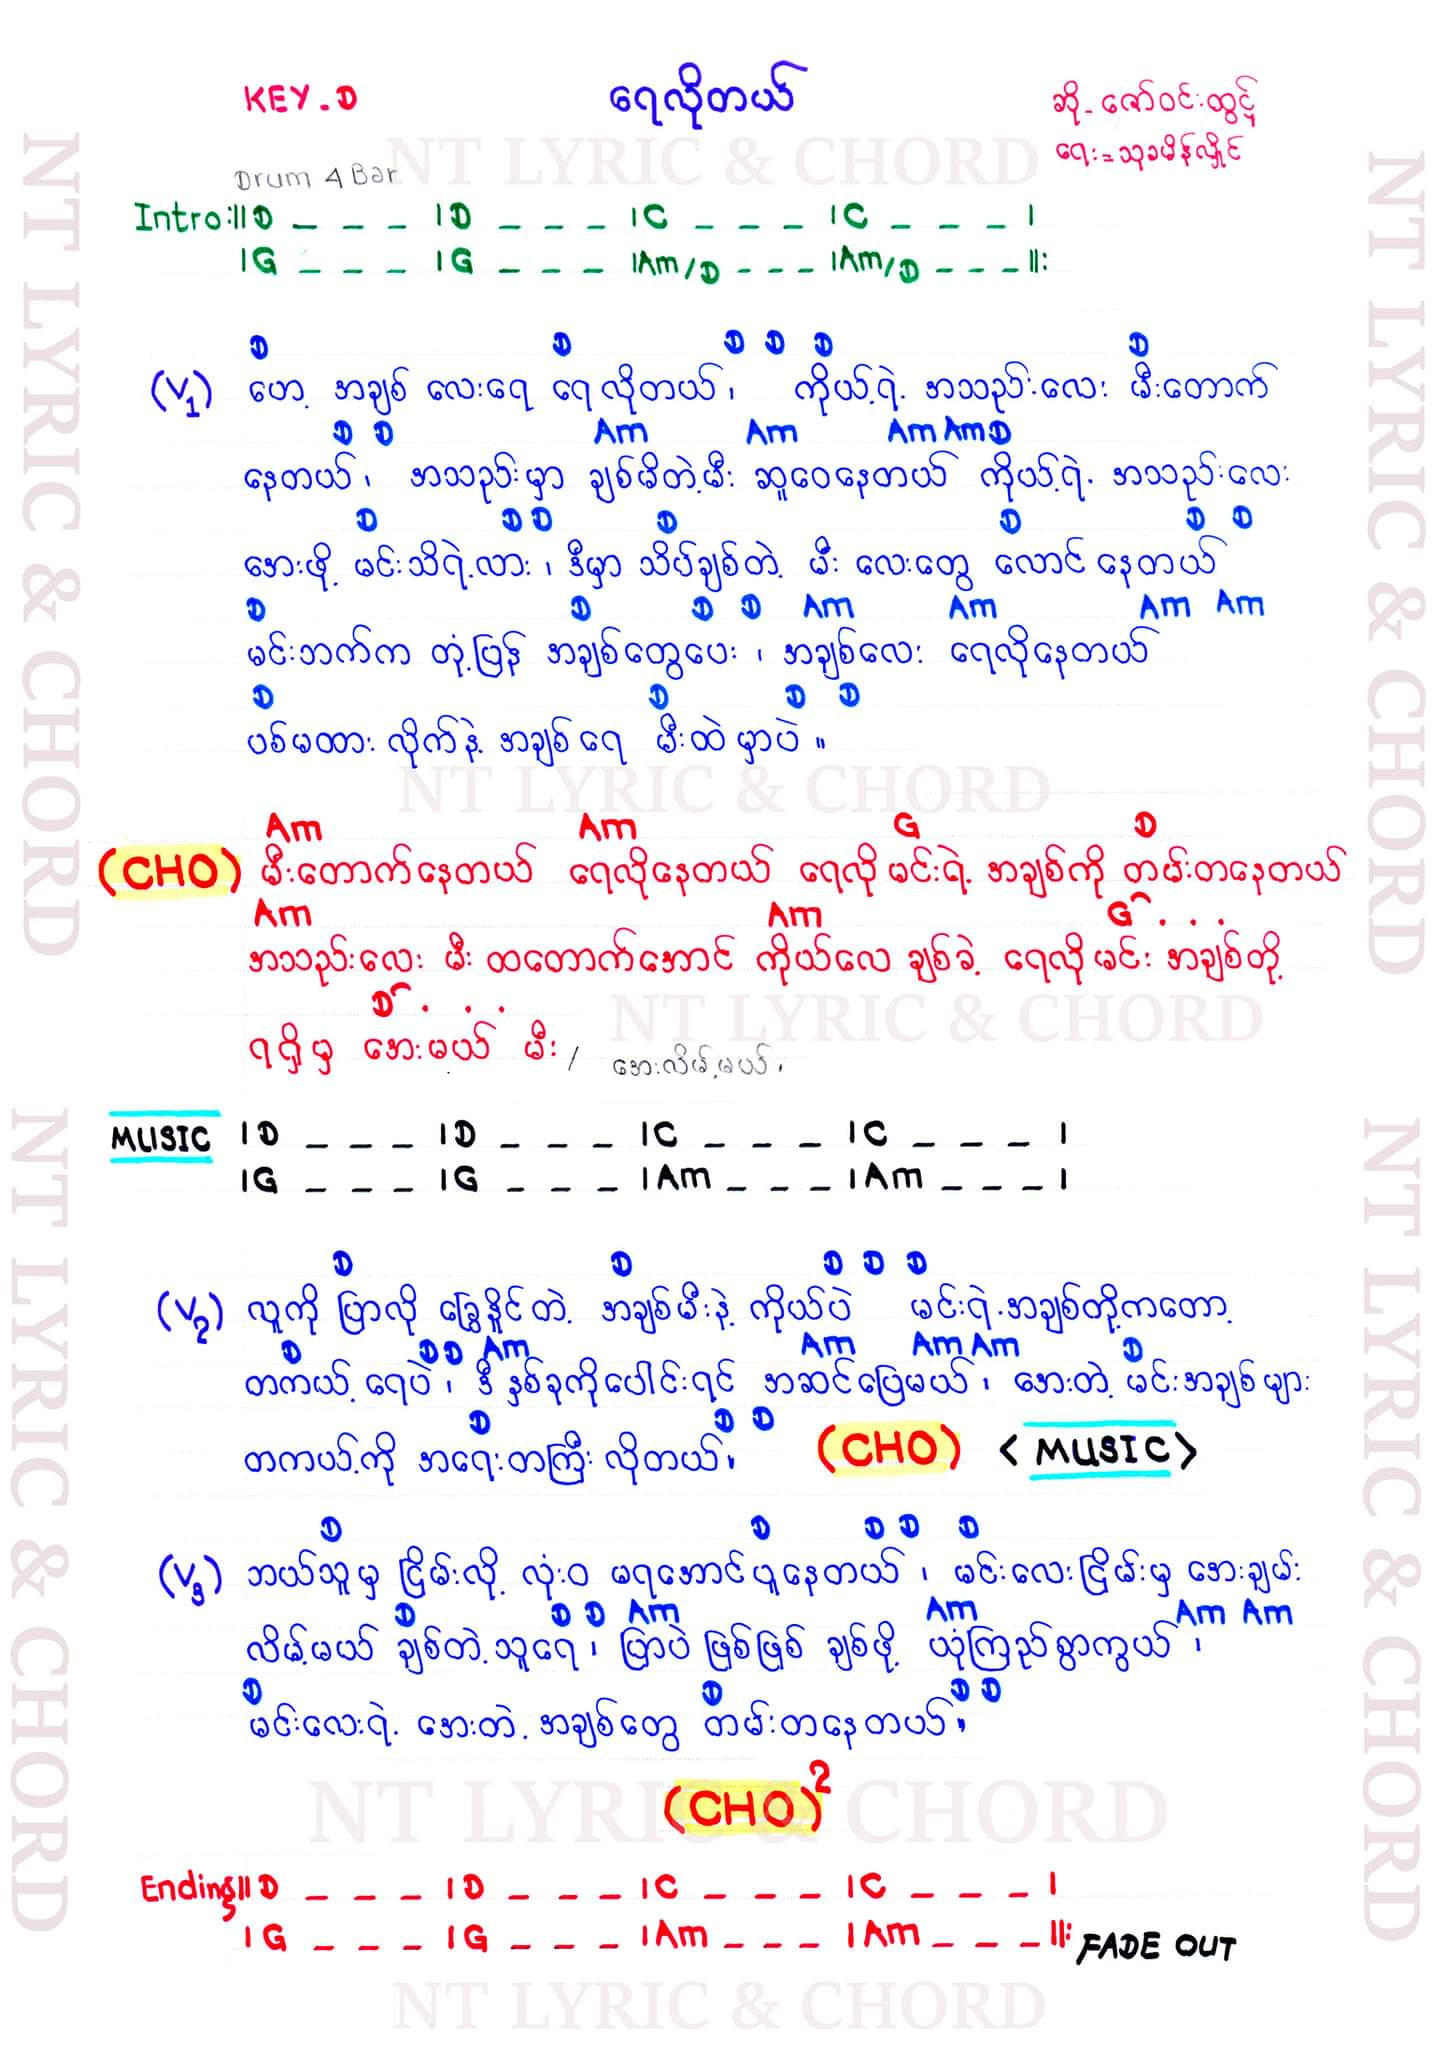 KEY - D
ရေလိုတယ်
ဆို - ဇော်ဝင်းထွဋ်
ရေး = သုခမိန်လှိုင်
Drum 4 Bar
Intro :|| D _ _ _ | D _ _ _ | C _ _ _ | C _ _ _ |
| G _ _ _ | G _ _ _ | Am/D _ _ _ | Am/D _ _ _ ||:
D D D D D D
(V1) ဟေ့ အချစ် လေးရေ ရေလိုတယ်၊ ကိုယ့်ရဲ့ အသည်းလေး မီးတောက်
D D Am Am Am Am D
နေတယ်၊ အသည်းမှာ ချစ်မိတဲ့မီး ဆူဝေနေတယ် ကိုယ့်ရဲ့ အသည်းလေး
D D D D D D D
အေးဖို့ မင်းသိရဲ့လား၊ ဒီမှာ သိပ်ချစ်တဲ့ မီး လေးတွေ လောင်နေတယ်
D D D D Am Am Am Am
မင်းဘက်က တုံ့ပြန် အချစ်တွေပေး၊ အချစ်လေး ရေလိုနေတယ်
D D D D
ပစ်မထား လိုက်နဲ့ အချစ်ရေ မီးထဲမှာပဲ။
Am Am G D
(CHO) မီးတောက်နေတယ် ရေလိုနေတယ် ရေလို မင်းရဲ့ အချစ်ကို တမ်းတနေတယ်
Am Am G . . .
အသည်းလေး မီး ထတောက်အောင် ကိုယ်လေ ချစ်ခဲ့ ရေလိုမင်း အချစ်တို့
D . . .
ရရှိမှ အေးမယ် မီး / အေးလိမ့်မယ်၊
MUSIC | D _ _ _ | D _ _ _ | C _ _ _ | C _ _ _ |
| G _ _ _ | G _ _ _ | Am _ _ _ | Am _ _ _ |
D D D D D
(V2) လူကို ပြာလို ခြွေနိူင်တဲ့ အချစ်မီးနဲ့ ကိုယ်ပဲ မင်းရဲ့အချစ်တို့ကတော့
D D D Am Am Am Am D
တကယ့် ရေပဲ၊ ဒီ နှစ်ခုကိုပေါင်းရင် အဆင်ပြေမယ်၊ အေးတဲ့ မင်းအချစ်များ
D D D
တကယ့်ကို အရေးတကြီး လိုတယ်။ (CHO) < MUSIC >
D D D D D
(V3) ဘယ်သူမှ ငြိမ်းလို့ လုံးဝ မရအောင်ပူနေတယ်၊ မင်းလေးငြိမ်းမှ အေးချမ်း
D D D Am Am Am Am
လိမ့်မယ် ချစ်တဲ့သူရေ၊ ပြာပဲ ဖြစ်ဖြစ် ချစ်ဖို့ ယုံကြည်စွာကွယ်၊
D D D D
မင်းလေးရဲ့ အေးတဲ့ အချစ်တွေ တမ်းတနေတယ်။
(CHO)2
Ending || D _ _ _ | D _ _ _ | C _ _ _ | C _ _ _ |
| G _ _ _ | G _ _ _ | Am _ _ _ | Am _ _ _ ||: FADE OUT
NT LYRIC & CHORD
NT LYRIC & CHORD
NT LYRIC & CHORD
NT LYRIC & CHORD
NT LYRIC & CHORD
NT LYRIC & CHORD
NT LYRIC & CHORD
NT LYRIC & CHORD
NT LYRIC & CHORD